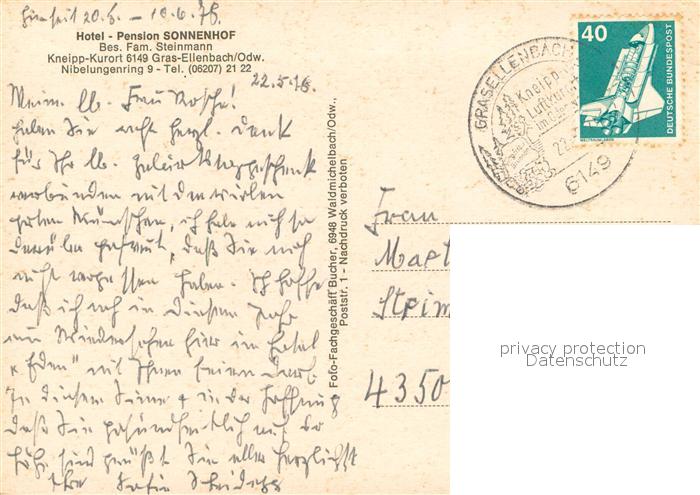 20.5. - 10.6.76.
Hotel - Pension SONNENHOF
Bes. Fam. Steinmann
Kneipp-Kurort 6149 Gras-Ellenbach/Odw.
Nibelungenring 9 - Tel. (06207) 21 22
22.5.76.
Meine lb. Frau
haben Sie recht herzl. Dank
für Ihr lb. Geburtstagsgeschenk
verbunden mit den vielen
guten Wünschen, ich habe mich so
darüber gefreut, daß Sie mich
nicht vergessen haben. Ich hoffe
daß ich noch in diesem Jahr
ein Wiedersehen hier im Hotel
"Eden" mit Ihnen feiern darf.
In diesem Sinne + in der Hoffnung
daß Sie gesundheitlich auf der
Höhe sind grüßt Sie alle herzlichst
Ihre
Foto-Fachgeschäft Bucher, 6948 Waldmichelbach/Odw.,
Poststr. 1 - Nachdruck verboten
GRASELLENBACH
Kneipp
Luftkur
im
22.
6149
40
DEUTSCHE BUNDESPOST
WELTRAUMLABOR
Frau
4350
privacy protection
Datenschutz